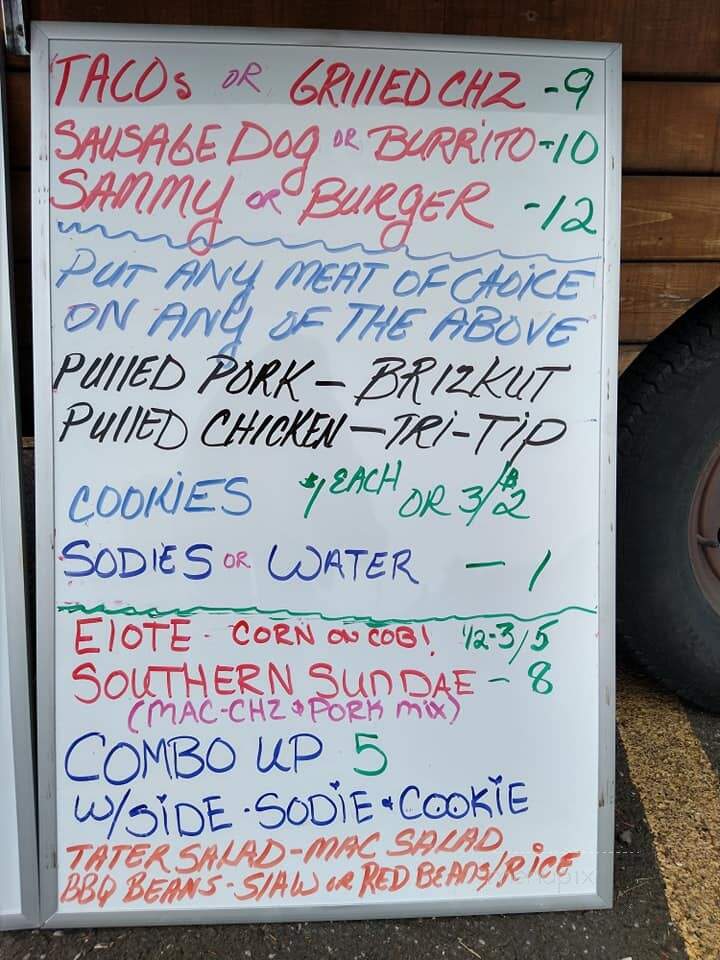 TACOs OR GRIllED CHZ -9
SAUSAGE DOg OR BURRITO -10
SAMMY OR BURGER -12
PUT ANY MEAT OF CHOICE
ON ANY OF THE ABOVE
PUllED PORK - BRIZKUT
PUllED CHICKEN - TRi-TiP
COOKIES $1 EACH OR 3/$2
SODIES OR WATER - 1
ElOTE - CORN ON COB! 1/2-3/5
SOUTHERN SUNDAE - 8
(MAC-CHZ & PORK MIX)
COMBO UP 5
W/SiDE · SODiE & COOKiE
TATER SALAD - MAC SALAD
BBQ BEANS - SlAW OR RED BEANS/RiCE